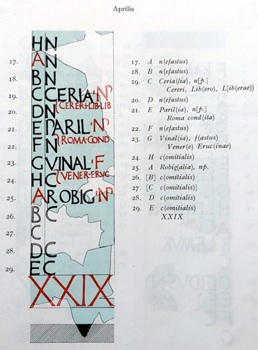 Aprilis
HN
17. AN
18. BN
19. CCERIA·NP
(CERERI·LIB·LIB
20. DN
21. EPARIL·NP
(ROMA COND
22. FN
23. GVINAL·F
(VENER·ERVC
24. HC
25. AROBIG·NP
26. BC
27. C
28. DC
29. EC
XXIX
17. A n(efastus)
18. B n(efastus)
19. C Ceria(lia), n[p.]
Cereri, Lib(ero), L[ib(erae)]
20. D n(efastus)
21. E Paril(ia), n[p.]
Roma cond(ita)
22. F n(efastus)
23. G Vinal(ia), f(astus)
Vener(e) Eruc(inae)
24. H c(omitialis)
25. A Robig(alia), np.
26. [B] c(omitialis)
27. [C c(omitialis)]
28. D c(omitialis)
29. E c(omitialis)
XXIX